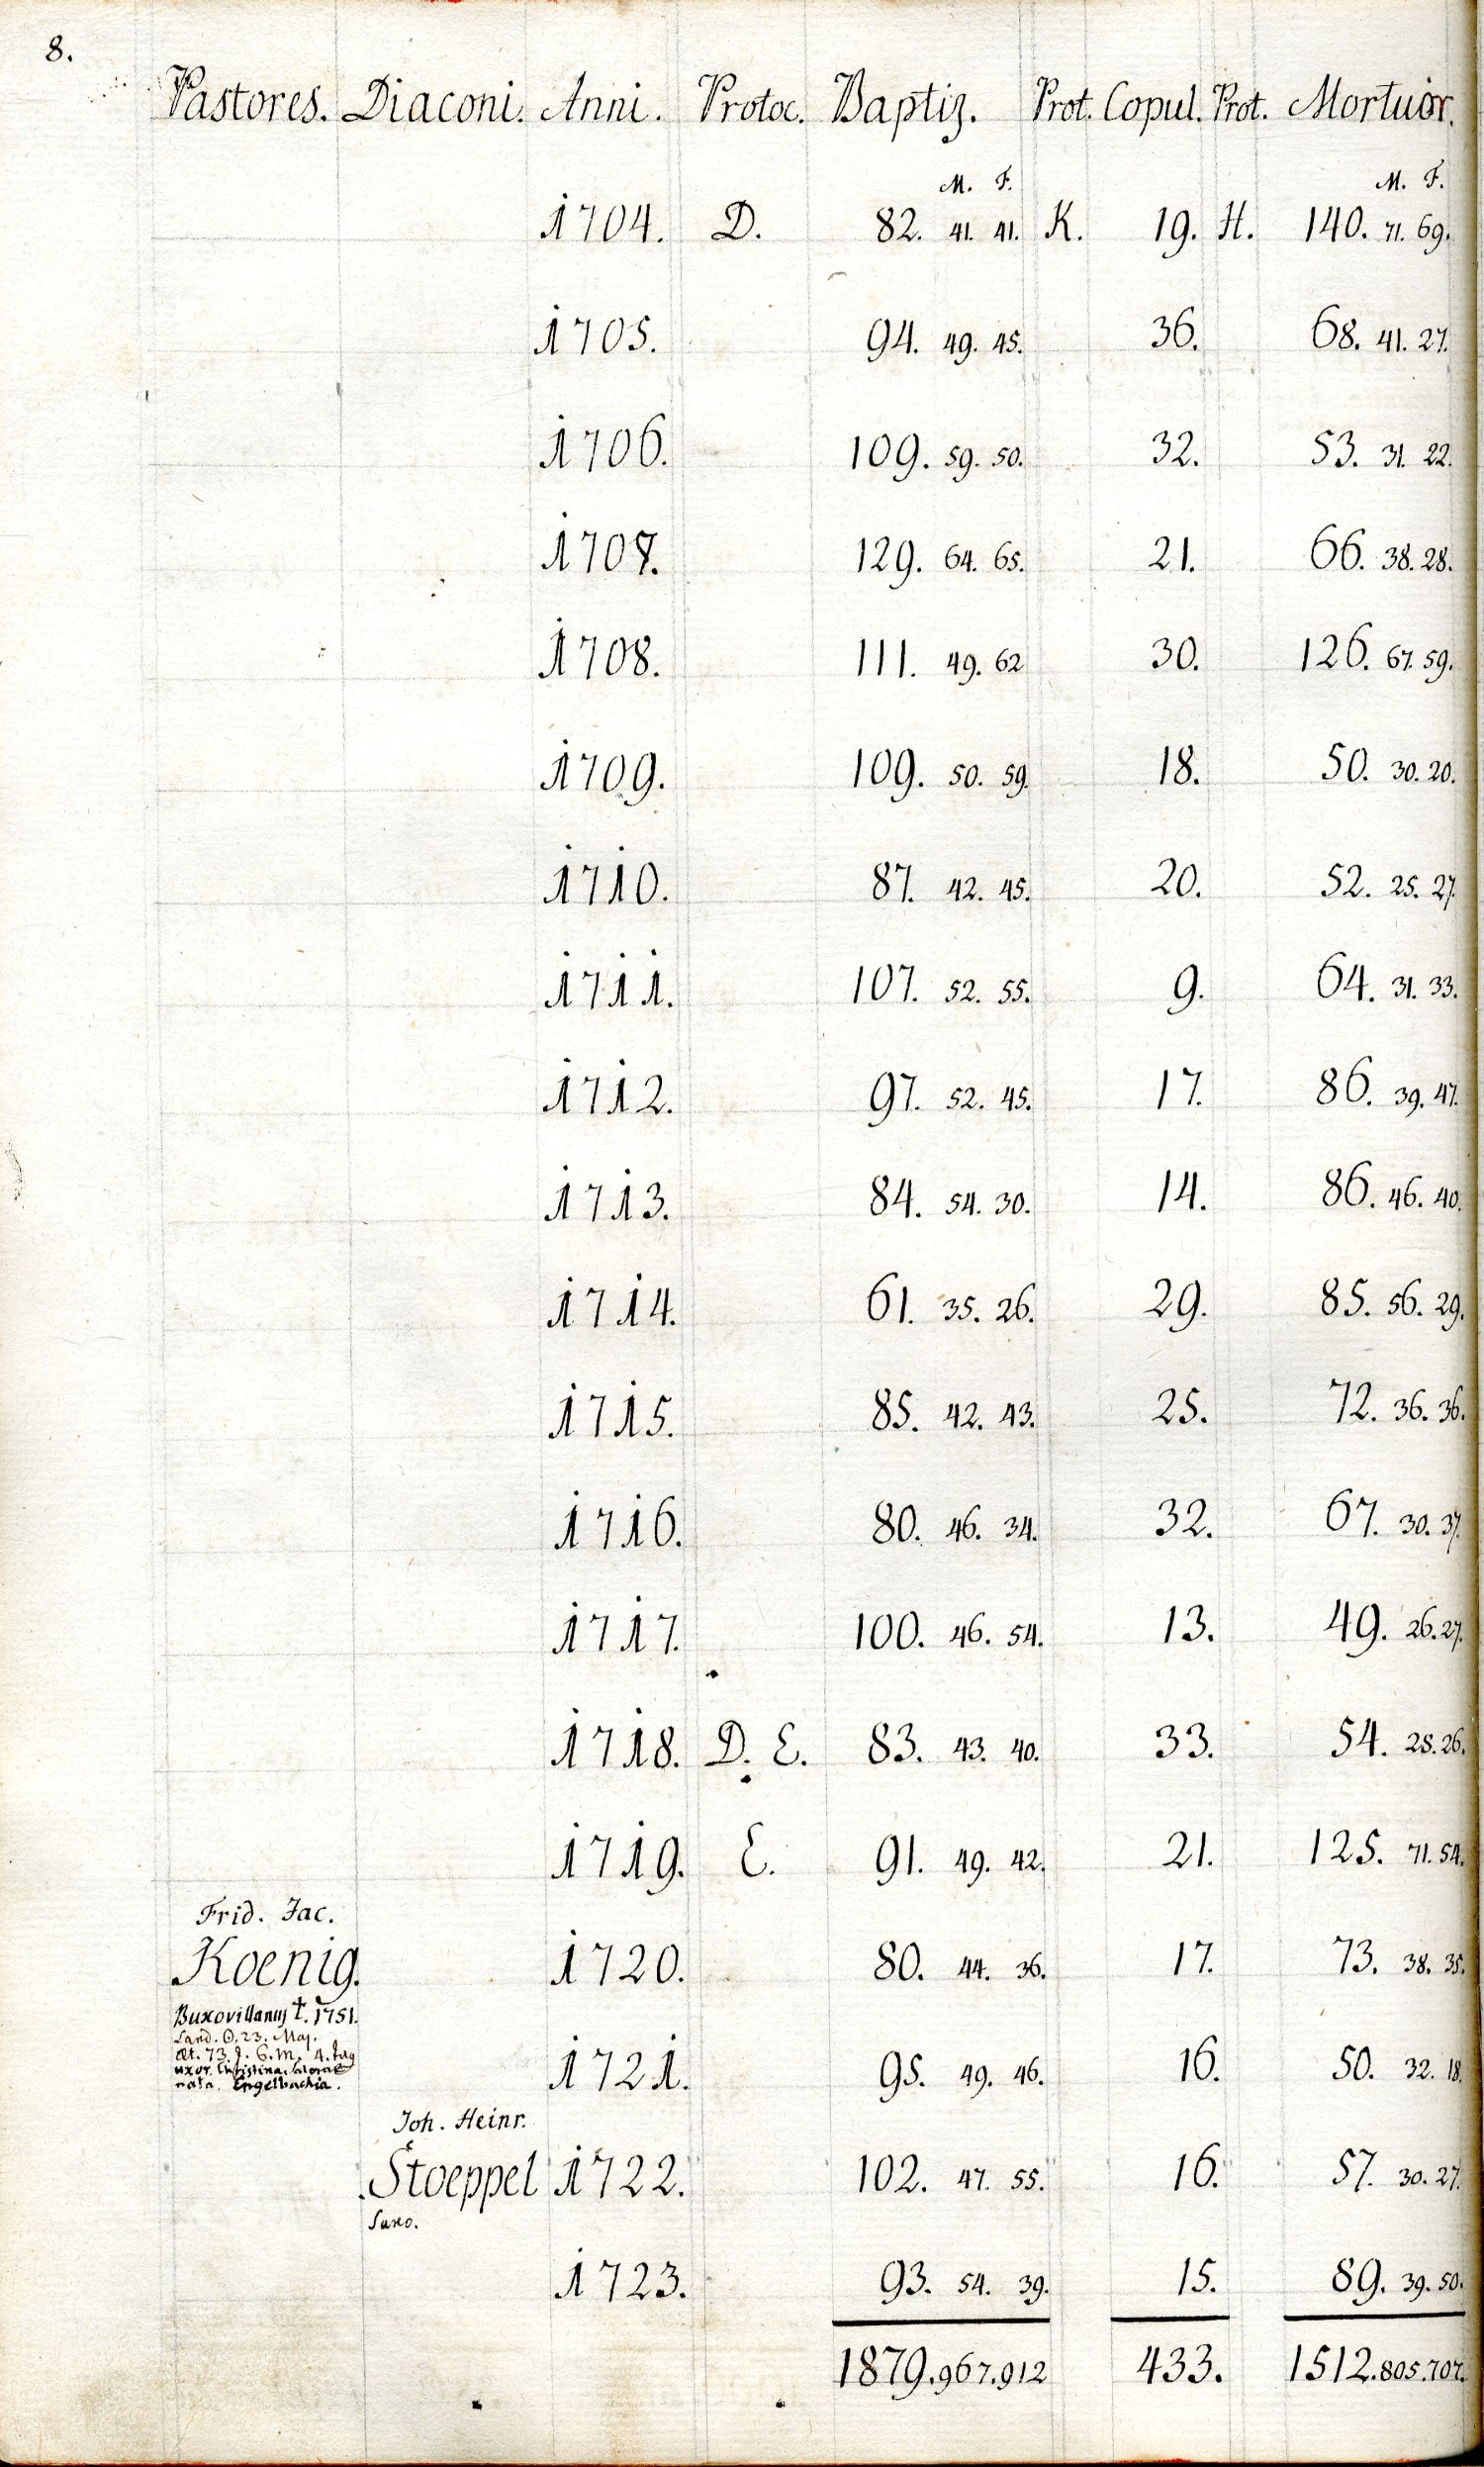 8.
Pastores. Diaconi. Anni. Protoc. Baptiz. Prot. Copul. Prot. Mortuor.
M. F. M. F.
1704. D. 82. 41. 41. K. 19. H. 140. 71. 69.
1705. 94. 49. 45. 36. 68. 41. 27.
1706. 109. 59. 50. 32. 53. 31. 22.
1707. 129. 64. 65. 21. 66. 38. 28.
1708. 111. 49. 62 30. 126. 67. 59.
1709. 109. 50. 59. 18. 50. 30. 20.
1710. 87. 42. 45. 20. 52. 25. 27.
1711. 107. 52. 55. 9. 64. 31. 33.
1712. 97. 52. 45. 17. 86. 39. 47.
1713. 84. 54. 30. 14. 86. 46. 40.
1714. 61. 35. 26. 29. 85. 56. 29.
1715. 85. 42. 43. 25. 72. 36. 36.
1716. 80. 46. 34. 32. 67. 30. 37.
1717. 100. 46. 54. 13. 49. 26. 27.
1718. D. E. 83. 43. 40. 33. 54. 28. 26.
1719. E. 91. 49. 42. 21. 125. 71. 54.
Frid. Jac.
Koenig. 1720. 80. 44. 36. 17. 73. 38. 35.
Buxovillanus †. 1751.
23. Maj.
æt. 73. J. 6. m. 4. tag
uxor. Christina
nata. Engelbachia.
1721. 95. 49. 46. 16. 50. 32. 18.
Joh. Heinr.
Stoeppel 1722. 102. 47. 55. 16. 57. 30. 27.
Saxo.
1723. 93. 54. 39. 15. 89. 39. 50.
1879. 967. 912 433. 1512. 805. 707.